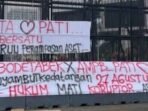 IA ♡ PATI
BERSATU
RUU PERAMPASAN ASET
BODETABEK X AMPB PATI
MENYAMBUT KEDATANGAN 27 AGUSTUS
HUKUM MATI KORUPTOR